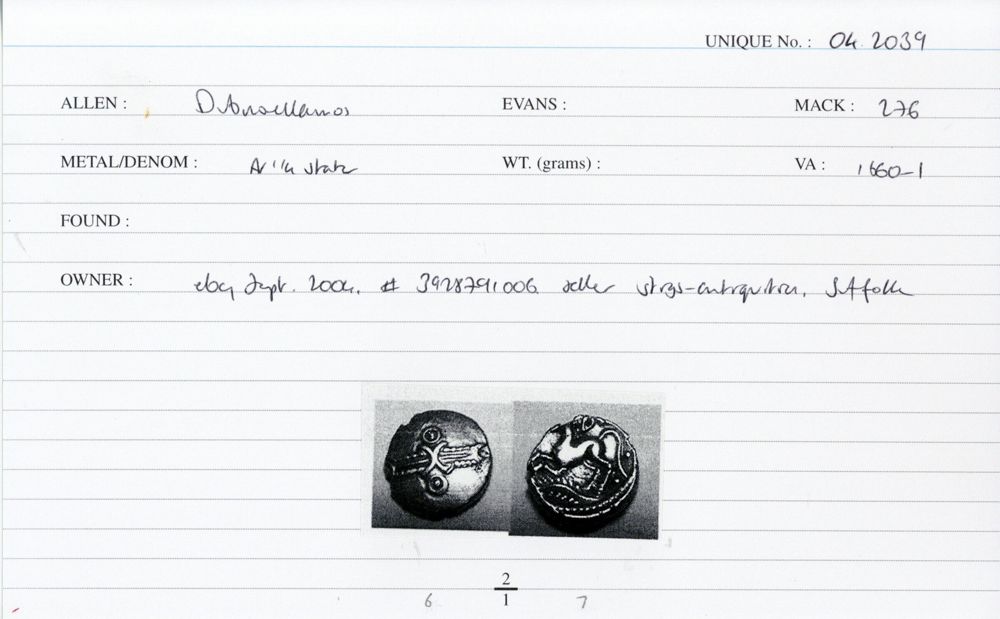 UNIQUE No. : 04.2039
ALLEN : Dubnovellaunos EVANS : MACK : 276
METAL/DENOM : AV 1/4 stater WT. (grams) : VA : 1660-1
FOUND :
OWNER : ebay Sept. 2004. # 3928791006. seller Suffolk
2
6 1 7